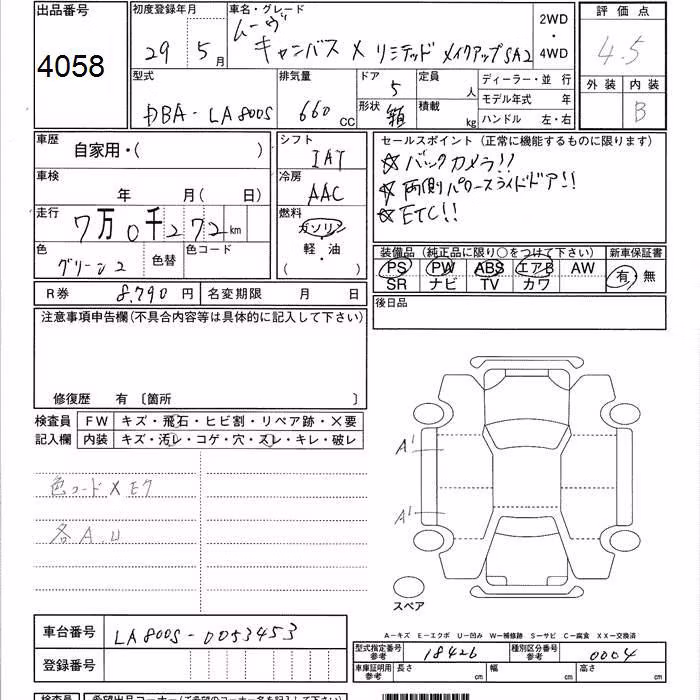 出品番号 初度登録年月 車名・グレード 2WD・4WD 評価点
4058 29 5月 ムーヴ キャンバス X リミテッド メイクアップSA2 4.5
型式 排気量 ドア 定員 ディーラー・並行 外装 内装
DBA-LA800S 660 CC 5 人 モデル年式 年 B
形状 箱 積載 kg ハンドル 左・右
車歴 シフト セールスポイント (正常に機能するものに限ります)
自家用・( ) IAT ☆バックカメラ!!
車検 冷房 ☆両側パワースライドドア!!
年 月( 日) AAC ☆ETC!!
走行 燃料
7万0千272km ガソリン
色 色替 色コード 軽・油 装備品 (純正品に限り○をつけて下さい) 新車保証書
グリーン2 ( ・ ) PS PW ABS エアB AW 有・無
SR ナビ TV カワ
R券 8,790円 名変期限 月 日 後日品
注意事項申告欄(不具合内容等は具体的に記入して下さい)
修復歴 有 〔箇所 〕
検査員 FW キズ・飛石・ヒビ割・リペア跡・×要
記入欄 内装 キズ・汚レ・コゲ・穴・スレ・キレ・破レ
A'
色コードX
各A.U
A'
スペア
A-キズ E-エクボ U-凹み W-補修跡 S-サビ C-腐食 XX-交換済
車台番号 LA800S-0053453 型式指定番号 参考 18426 種別区分番号 参考 0004
登録番号 車庫証明用 参考 長さ cm 幅 cm 高さ cm
検査員 希望出品コーナー(ご希望のコーナー名を記入して下さい)